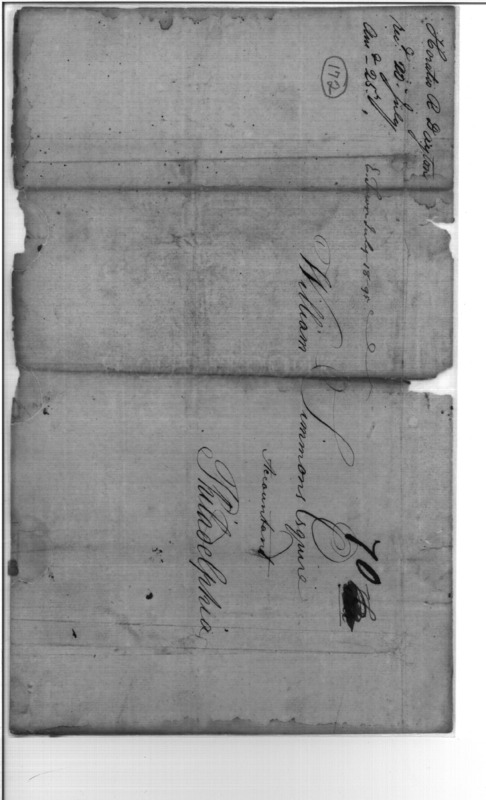 Horatio R Dayton
recd. 20. July
Ansd - 25. "
172
E. Town July 18. 95
William Simmons Esquire
Accountant
Philadelphia
70